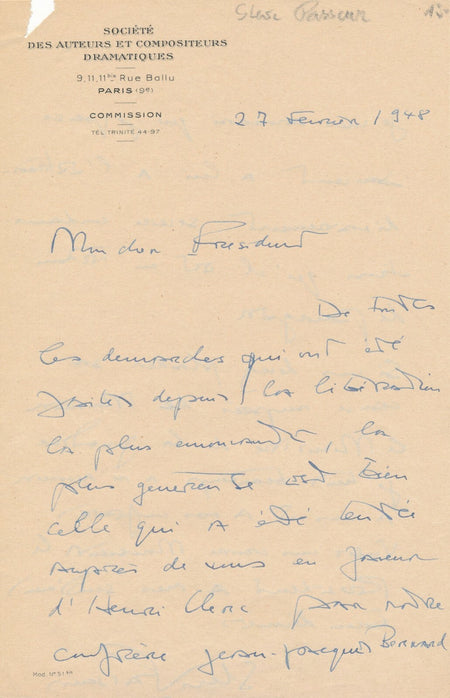 Steve Passeur
SOCIÉTÉ
DES AUTEURS ET COMPOSITEURS
DRAMATIQUES
9, 11, 11bis Rue Ballu
PARIS (9e)
COMMISSION
TÉL. TRINITÉ 44-97
27 février 1948
Mon cher Président
De toutes
les démarches qui ont été
faites depuis la libération
la plus émouvante, la
plus généreuse c'est bien
celle qui a été tentée
auprès de vous en faveur
d'Henri Clerc par notre
confrère Jean-Jacques BERNARD
Mod. N° 51 bis